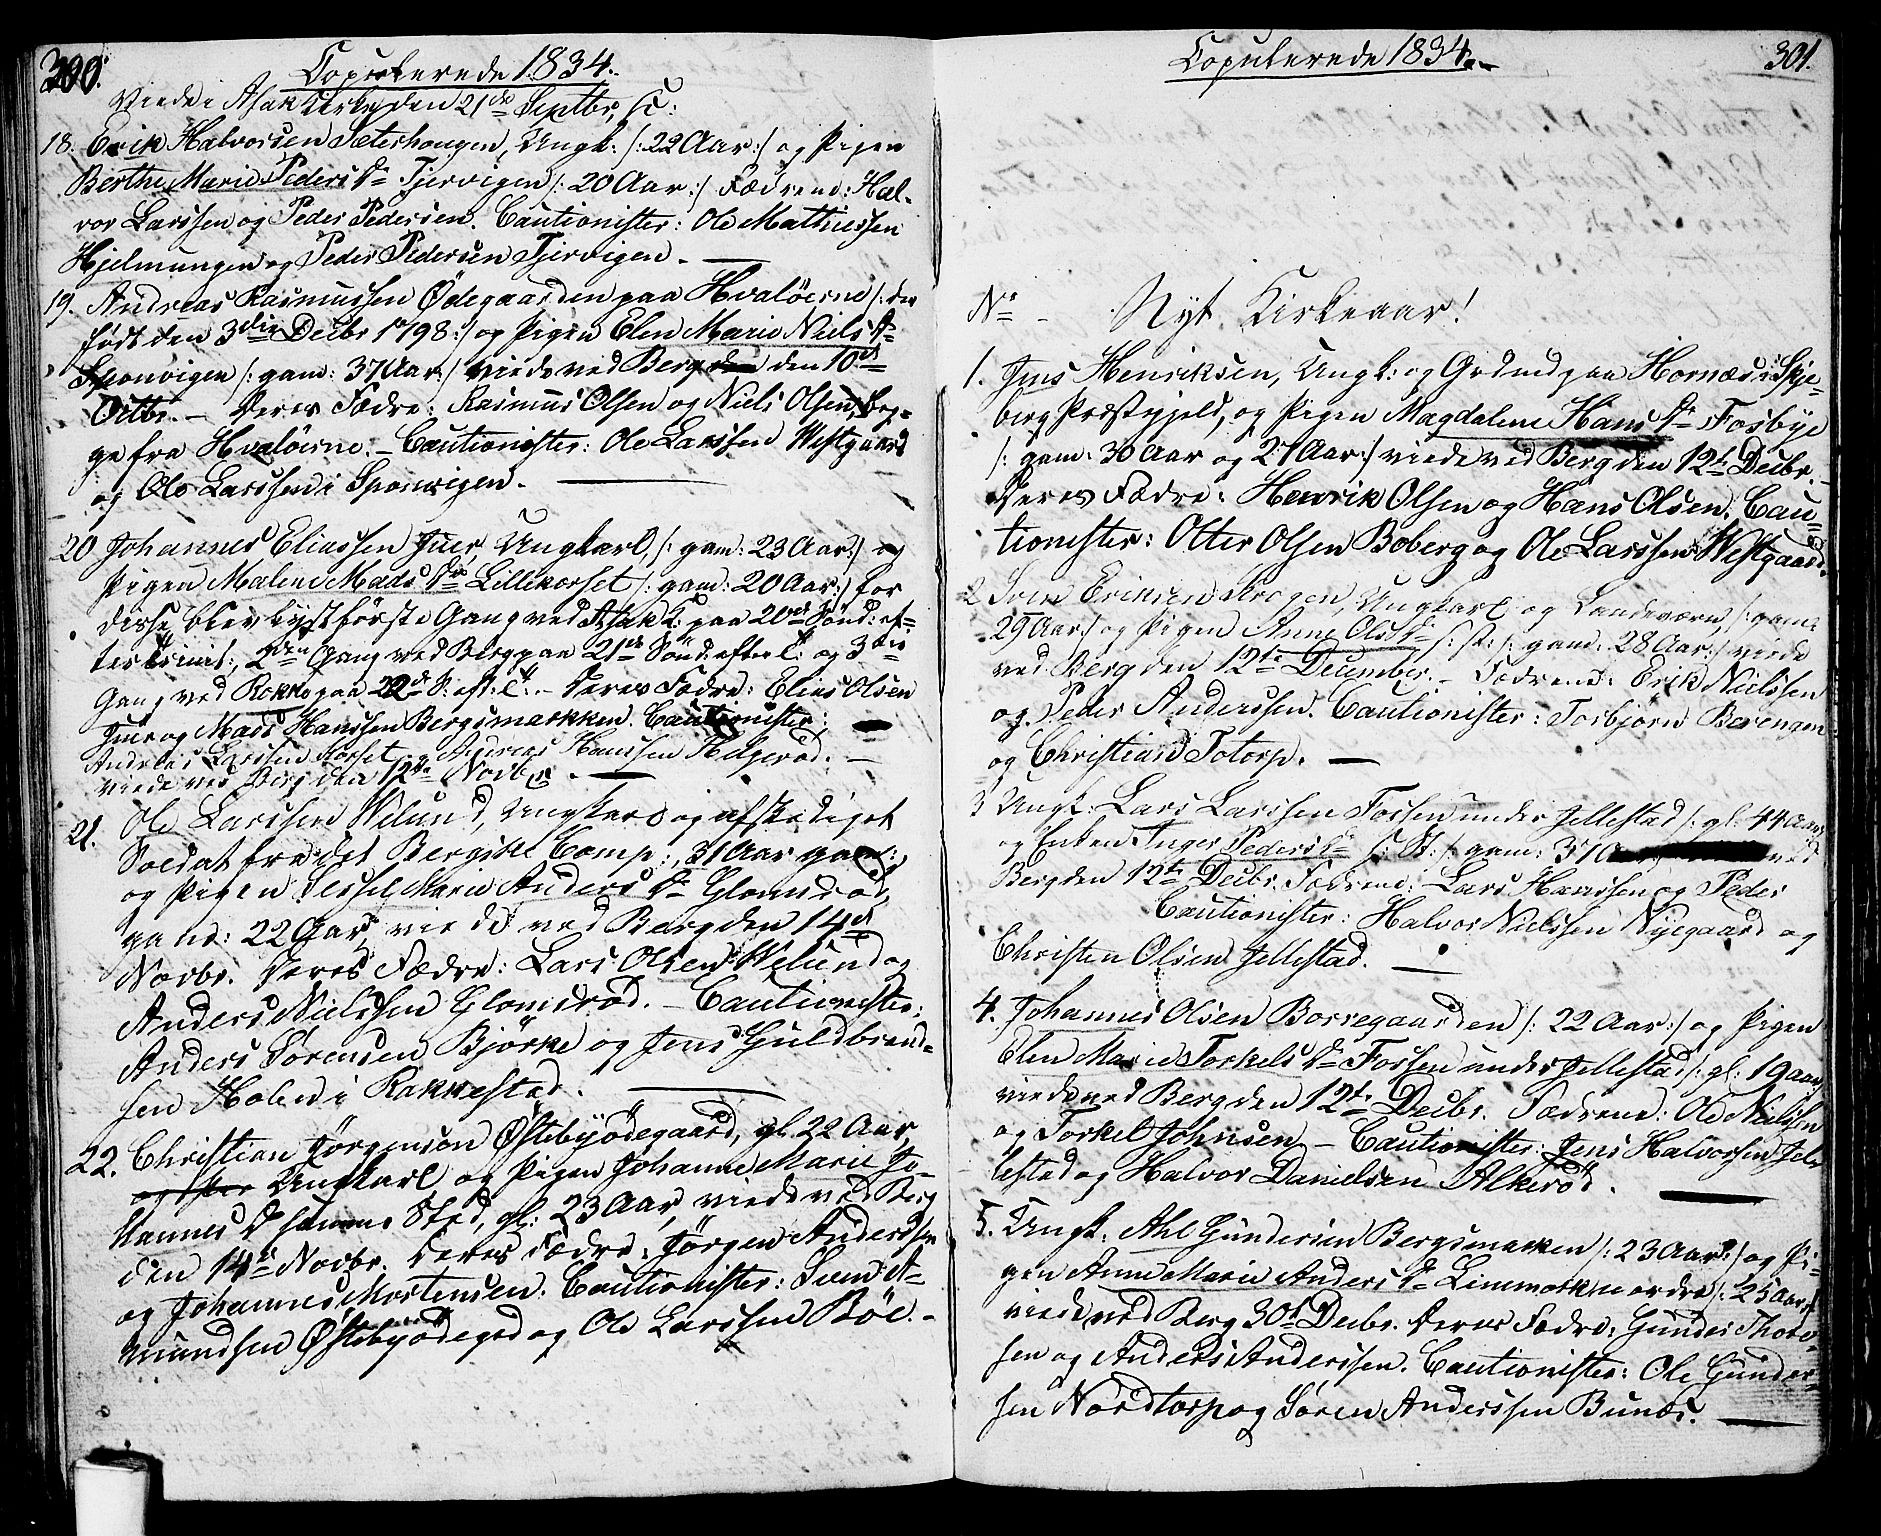 300.
Copulerede 1834.
Viede i Asak Kirke den 21de Septbr,
18. Erik Halvorsen Sæterhaugen, Ungk: /: 22 Aar :/ og Pigen
Berthe Marie Peders Dr Tjervigen /: 20 Aar :/ Fædrene: Hal-
vor Larssen og Peder Pedersen. Cautionister: Ole Mathiessen
Hjelmungen og Peder Pedersen Tjervigen. —
19. Andreas Rasmussen Ødegaarden paa Hvaløerne /:
født den 3die Decbr 1798 :/ og Pigen Elen Marie Niels Dr
Sponvigen /: gam: 37 Aar :/ viede ved Berg den 10de
Octbr. — Deres Fædre: Rasmus Olsen og Niels Olsen, beg-
ge fra Hvaløerne. — Cautionister: Ole Larssen Westgaard
og Ole Larssen i Sponvigen. —
20 Johannes Eliassen Juer, Ungkarl, /: gam: 23 Aar :/ og
Pigen Malene Mads Dr Lillekorset /: gam: 20 Aar :/ for
disse blev lyst förste Gang ved Asak K: paa 20de Sönd: ef-
ter Trinit:, 2den Gang ved Berg paa 21de Sönd: efter T: og 3die
Gang ved Rokke paa 22de S: eft: T: — Deres Fædre: Elias Olsen
Juer og Mads Hanssen Bergsmarkken. Cautionister:
Andreas Larssen Korset og Andreas Hanssen Helgerød. —
viede ved Berg den 12te Novbr. —
21. Ole Larssen Welund, Ungkarl og afskediget
Soldat fra det Bergske Comp:, 31 Aar gam:
og Pigen Sessel Marie Anders Dr Glomsrød,
gam: 22 Aar, viede ved Berg den 14de
Novbr. Deres Fædre: Lars Olsen Welund og
Anders Nielssen Glomsrød. — Cautionister:
Anders Sørensen Bjørke og Jens Guldbrand-
sen Holen i Rakkestad. —
22. Christian Jörgensen Østebyødegaard, gl 22 Aar,
Ungkarl og Pigen Johanne Marie Jo-
hannes D samme Sted, gl: 23 Aar, viede ved Berg
den 14de Novbr. Deres Fædre: Jörgen Anderssen
og Johannes Mortensen. Cautionister: Svend A-
mundsen Østebyødegrd og Ole Larssen Böe. —
Copulerede 1834. —
301.
No — Nyt Kirkeaar!
1. Jens Henriksen, Ungk: og paa Hornæs i Skje-
berg Præstegjeld, og Pigen Magdalene Hans Dr Fosbye
/: gam: 30 Aar og 27 Aar :/ viede ved Berg den 12te Decbr. —
Deres Fædre: Henrik Olsen og Hans Olsen. Cau-
tionister: Otter Olsen Boberg og Ole Larssen Westgaard.
2 Sven Eriksen Krogen, Ungkarl og Landeværn, /: gam:
29 Aar :/ og Pigen Anne Ols Dr /: st: /: gam: 28 Aar :/ viede
ved Berg den 12te December. — Fædrene: Erik Nielssen
og Peder Anderssen. Cautionister: Torbjörn Berengen
og Christian Totorp. —
3 Ungk: Lars Larssen Fossen under Jellestad /: gl: 44 Aar
og Enken Inger Peders Dr /: St: /: gam: 37 ved
Berg den 12te Decbr. Fædrene: Lars Hanssen og Peder
Cautionister: Halvor Nielssen Nyegaard og
Christen Olsen Jellestad. —
4. Johannes Olsen Borregaarden /: 22 Aar :/ og Pigen
Elen Marie Torkels Dr Fossen under Jellestad /: gl: 19 Aar:/
viede ved Berg den 12te Decbr. Fædrene: Ole Nielssen
og Torkel Johnsen. — Cautionister: Jens Halvorssen Jel-
lestad og Halvor Danielsen Alkerød. —
5. Ungk: Ahl Gundersen Bergsmarken /: 23 Aar :/ og Pi-
gen Anne Marie Anders Dr Limmark nordre /: 25 Aar :/
viede ved Berg 30te Decbr. Deres Fædre: Gunder Thor-
sen og Anders Anderssen. Cautionister: Ole Gunder-
sen Nordtorp og Sören Anderssen Bunæs. —